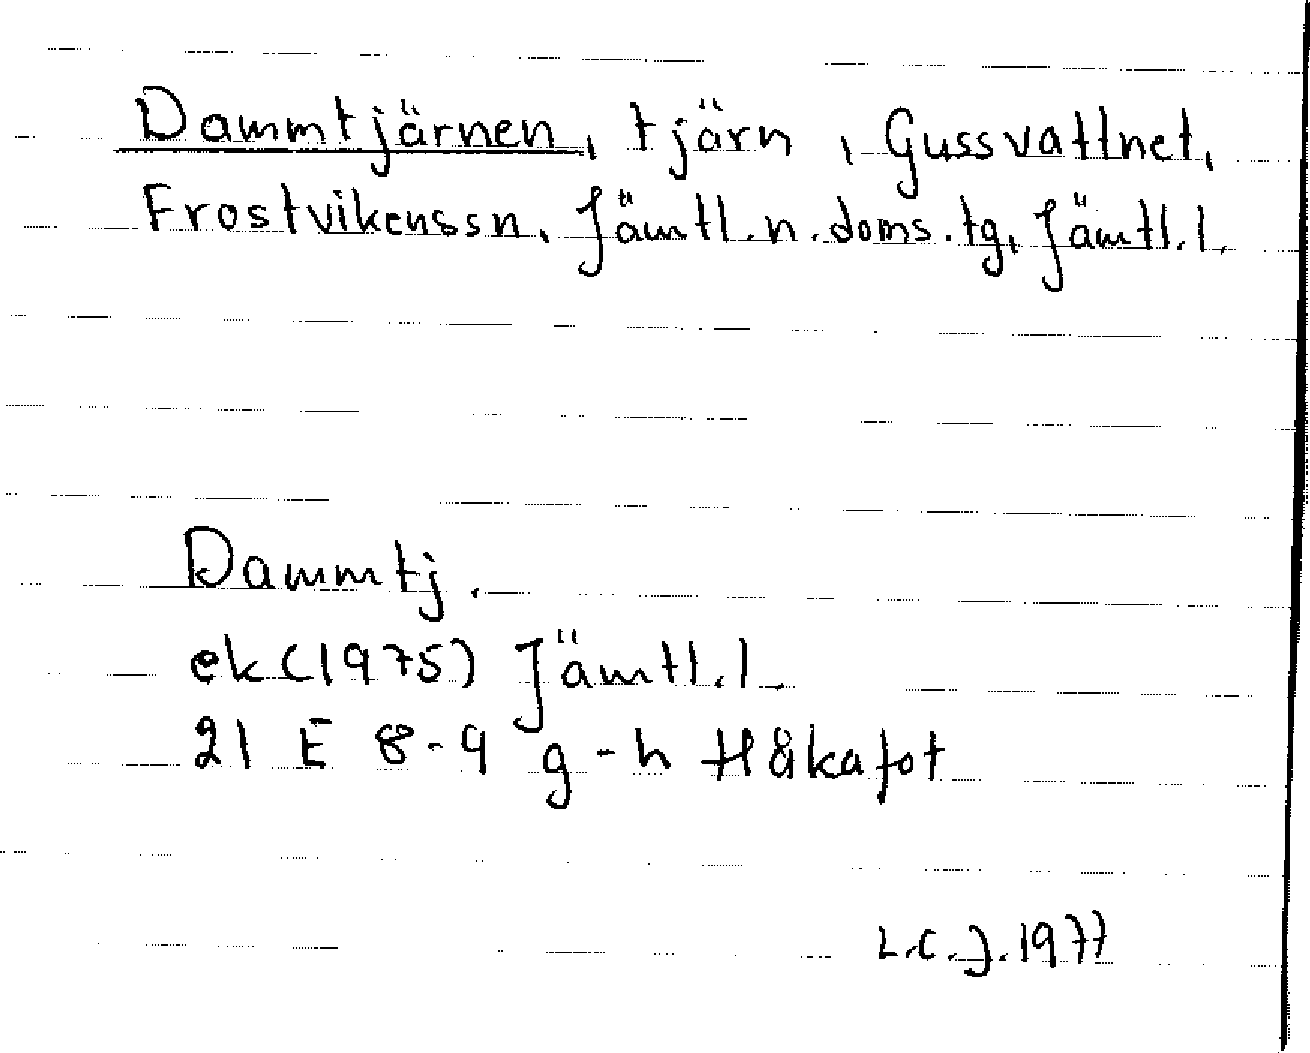 Dammtjärnen, tjärn, Gussvattnet,
Frostvikenssn, Jämtl.n.doms.tg, Jämtl.l.
Dammtj.
ek (1975) Jämtl.l
21 E 8-9 g-h Håkafot
L.C.J. 1977